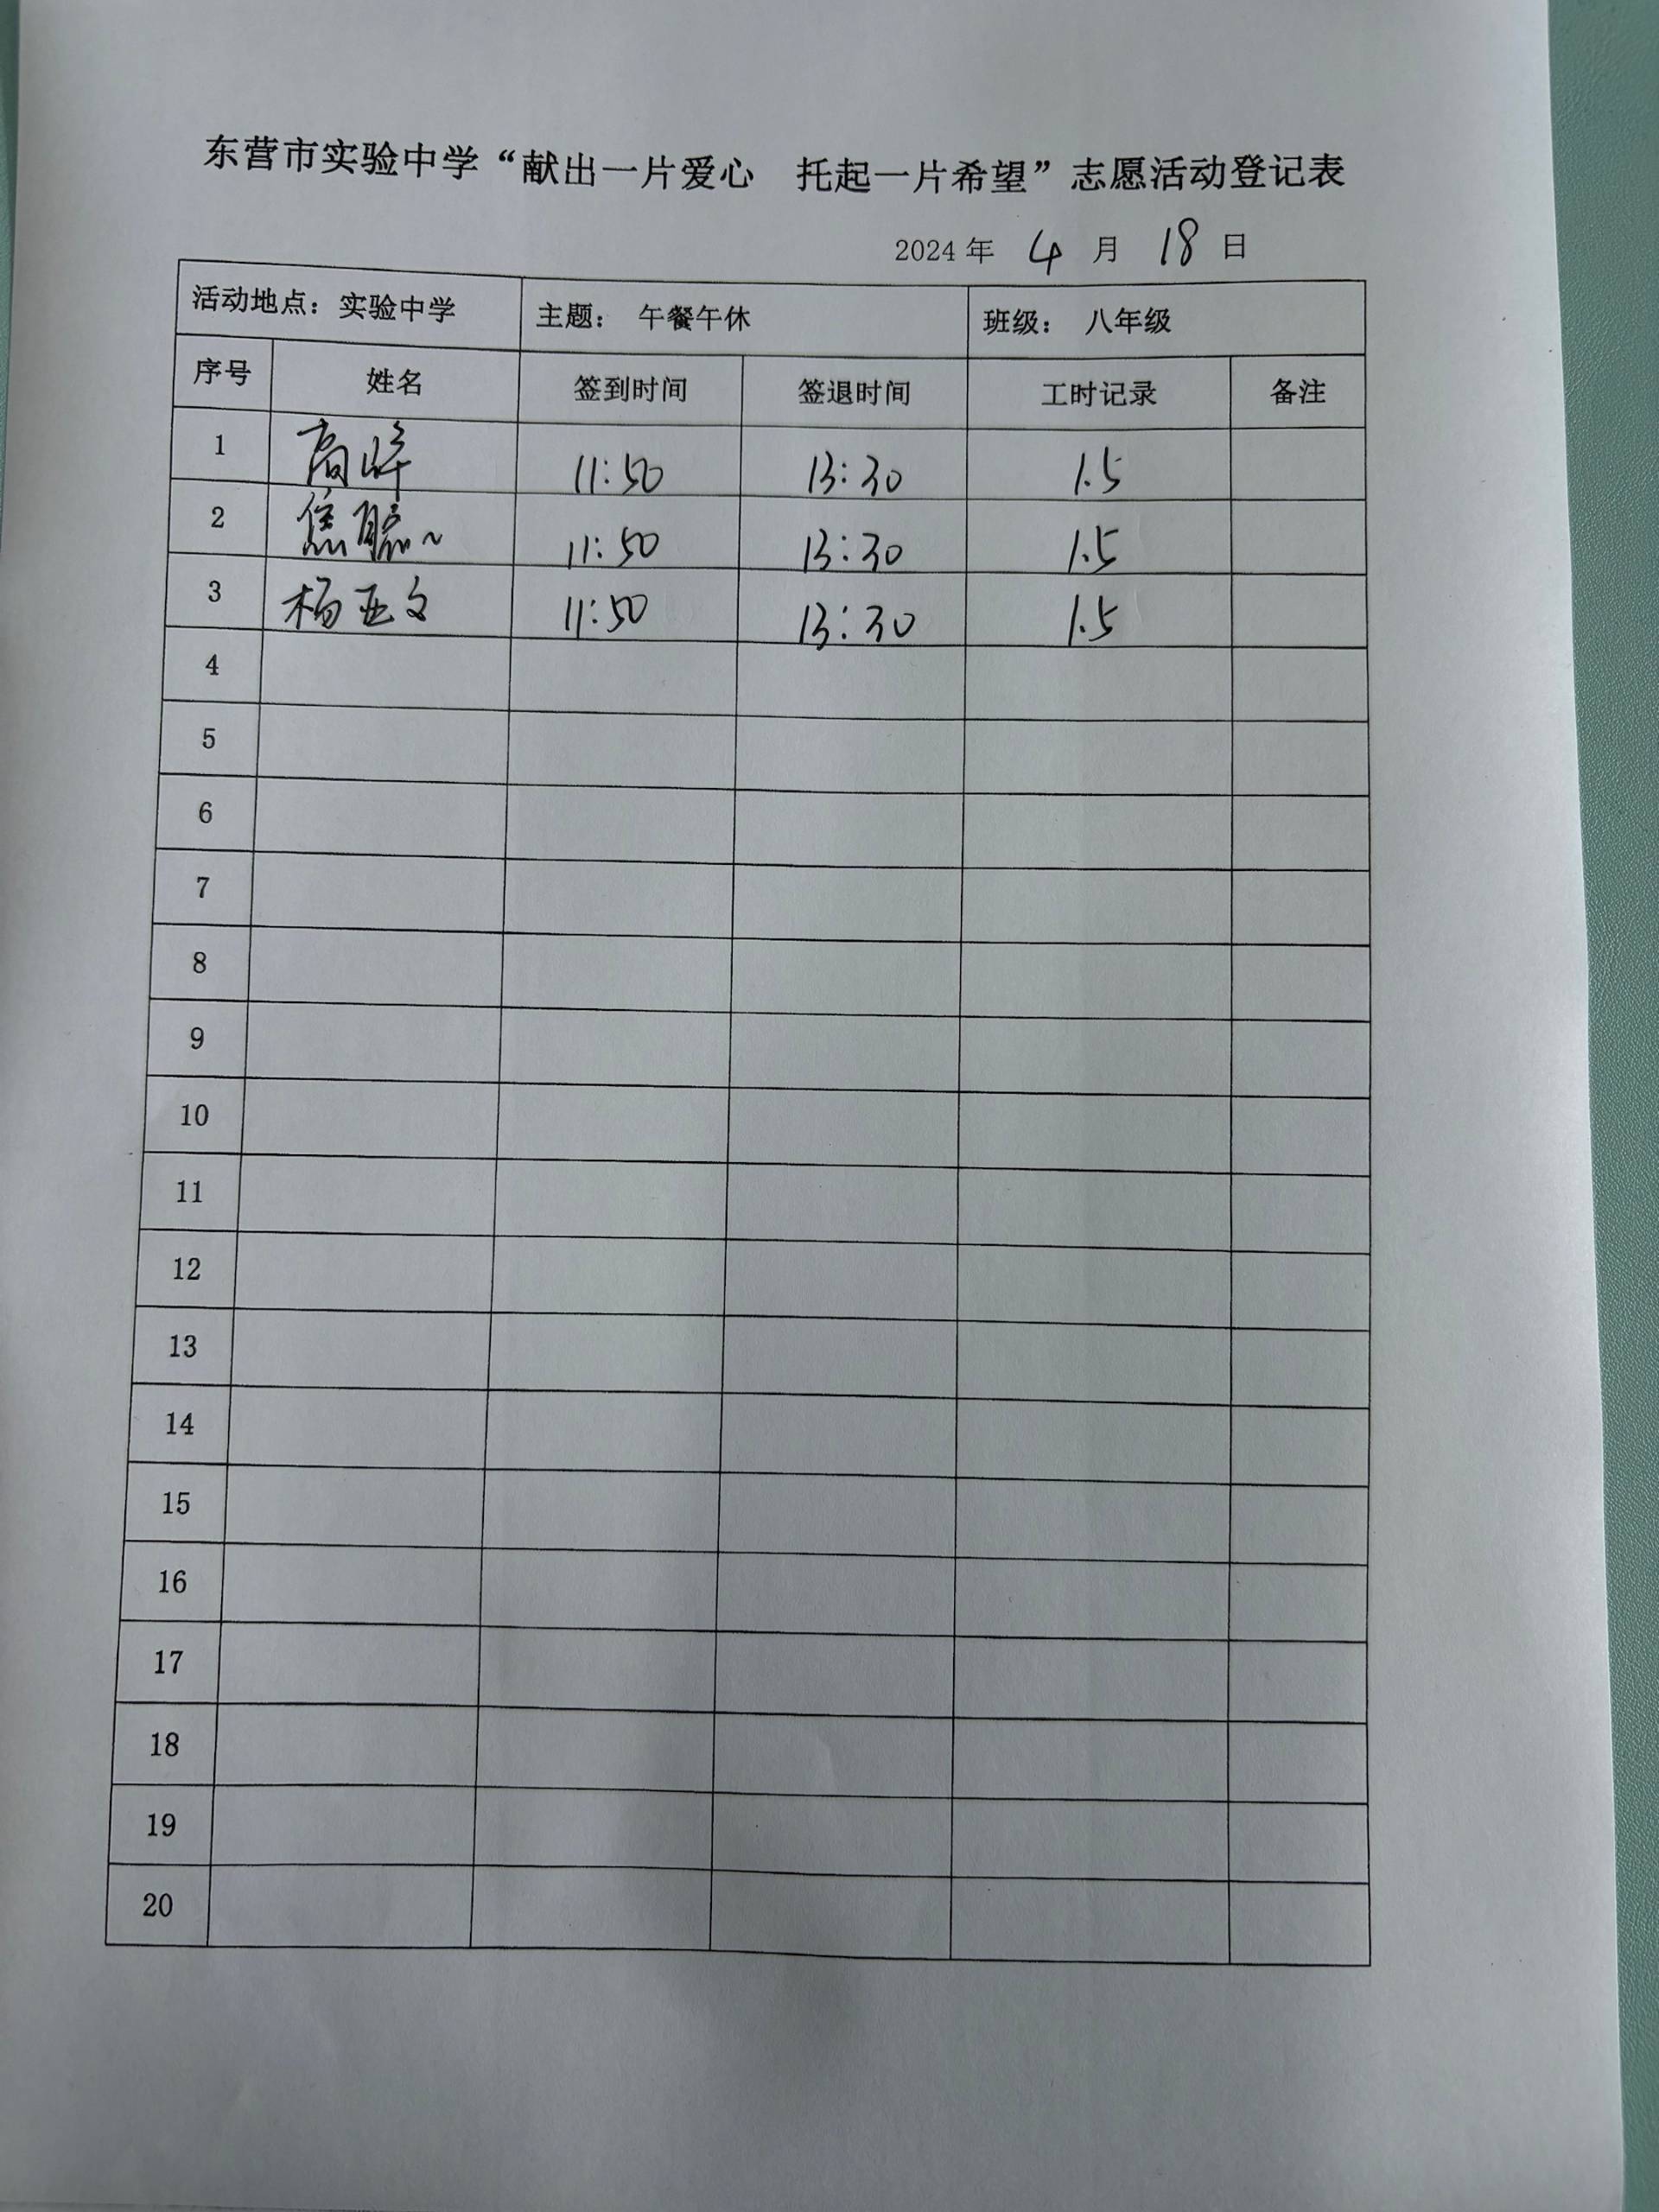 东营市实验中学“献出一片爱心　托起一片希望”志愿活动登记表
2024年 4 月 18 日
活动地点：实验中学 主题： 午餐午休 班级： 八年级
序号 姓名 签到时间 签退时间 工时记录 备注
1 高峰 11:50 13:30 1.5
2 焦 11:50 13:30 1.5
3 杨亚文 11:50 13:30 1.5
4
5
6
7
8
9
10
11
12
13
14
15
16
17
18
19
20